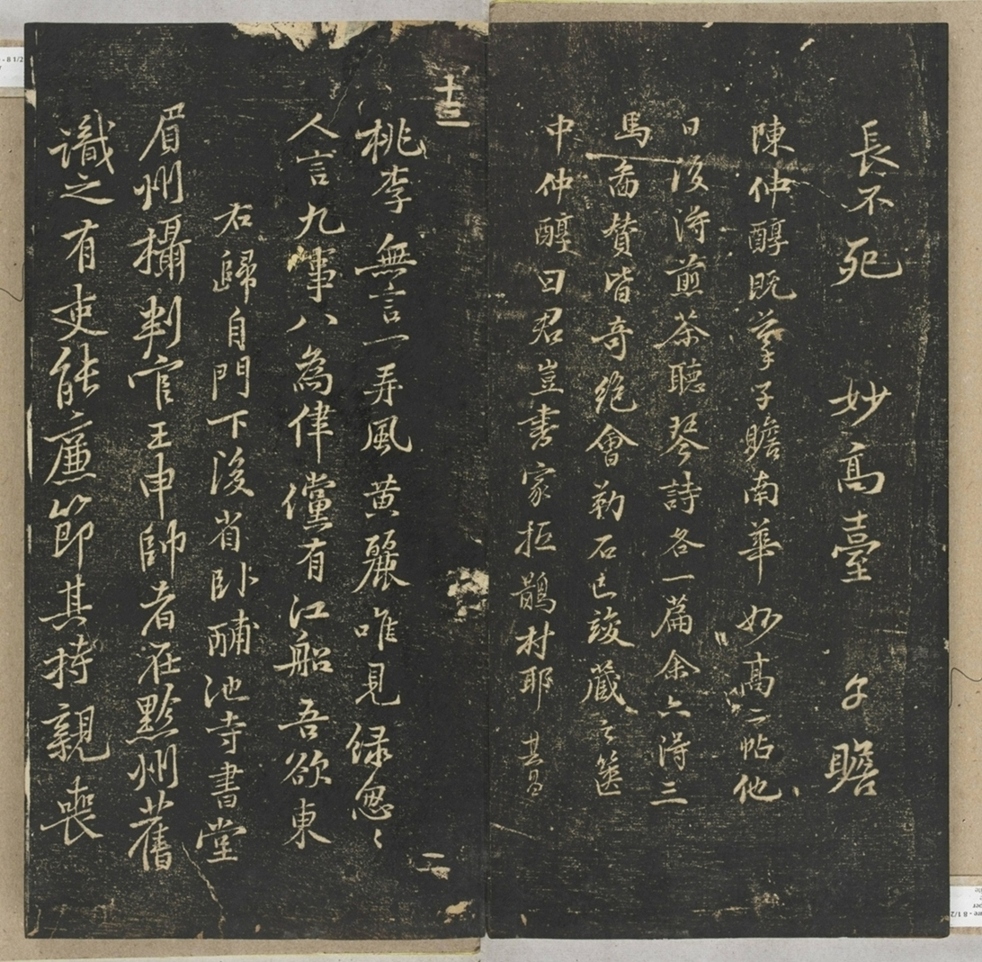 長不死 妙高臺 子瞻
陳仲醇既摹子瞻南華妙高二帖他
日復得煎茶聽琴詩各一篇余亦得三
馬圖贊皆奇絕會勒石已竣藏之篋
中仲醇曰君豈書家抵鵲村耶 其昌
十三
二
桃李無言一再風黃麗唯見綠怱〻
人言九事八為律儻有江船吾欲東
右歸自門下後省卧酺池寺書堂
眉州攝判官王申帥者在黔州舊
識之有吏能廉節其持親喪